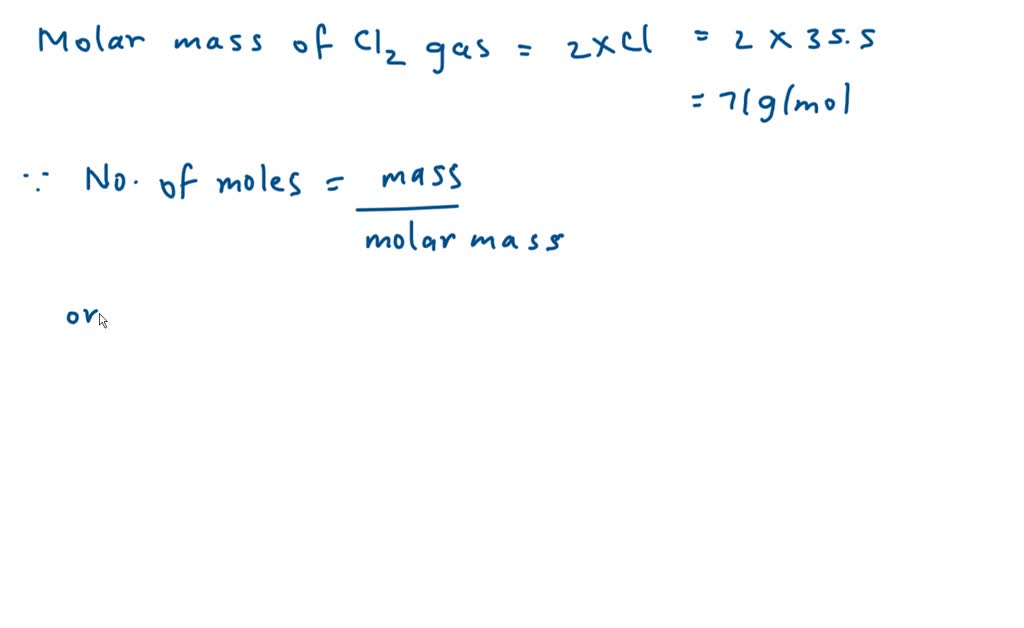 Molar mass of Cl₂ gas = 2×Cl = 2 × 35.5
= 71g/mol
∵ No. of moles = mass
molar mass
or